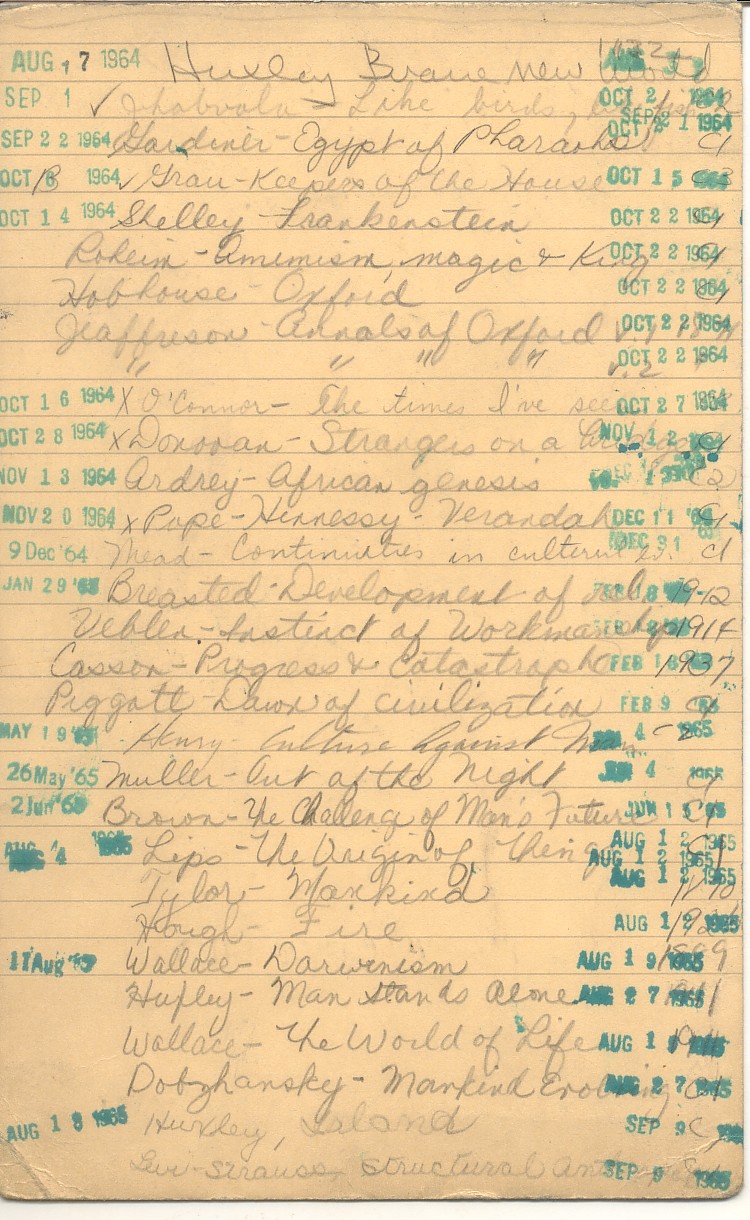 AUG 17 1964 Huxley Brave New World 1932
SEP 1 ✓ Jhabvala - Like birds, like fishes OCT 2 1964
SEP 22 1964 Gardiner - Egypt of Pharaohs SEP 21 1964 C1
OCT 8 1964 ✓ Grau - Keepers of the House OCT 15 1964 C3
OCT 14 1964 Shelley - Frankenstein OCT 22 1964 C1
Roheim - Amimism, magic & King OCT 22 1964 C1
Hobhouse - Oxford OCT 22 1964 C1
Jeaffreson - Annals of Oxford v.1 OCT 22 1964
" " " " v.2 OCT 22 1964
OCT 16 1964 X O'Connor - The times I've seen OCT 27 1964
OCT 28 1964 X Donovan - Strangers on a Bridge NOV 12 1964 C1
NOV 13 1964 Ardrey - African genesis C2
NOV 20 1964 X Pope-Hennessy - Verandah DEC 11 '64 C1
9 Dec '64 Mead - Continuities in cultural DEC 31 C1
JAN 29 '65 Breasted - Development of rel. FEB 18 1912
Veblen - Instinct of Workmanship 1914
Casson - Progress & Catastrophe FEB 1 1937
Piggott - Dawn of civilization FEB 9 C1
MAY 19 '65 Henry - Culture Against Man - 2 JUN 4 1965
26 May '65 Muller - Out of the Night JUN 4 1965 C1
2 Jun '65 Brown - The Challeng of Man's Future JUN 15 '65 C1
AUG 4 1965 Lips - The Origin of Things AUG 12 1965
AUG 12 1965 C1
Tylor - Mankind AUG 12 1965
Hough - Fire AUG 12 1965
17 Aug '65 Wallace - Darwinism AUG 19 1965 1889
Huxley - Man Stands Alone AUG 27 1965 1941
Wallace - The World of Life AUG 1 1911
Dobzhansky - Mankind Evolving AUG 27 1965 C1
AUG 18 1965 Huxley, Island SEP 9 C
Levi-Strauss, Structural SEP 9 1965